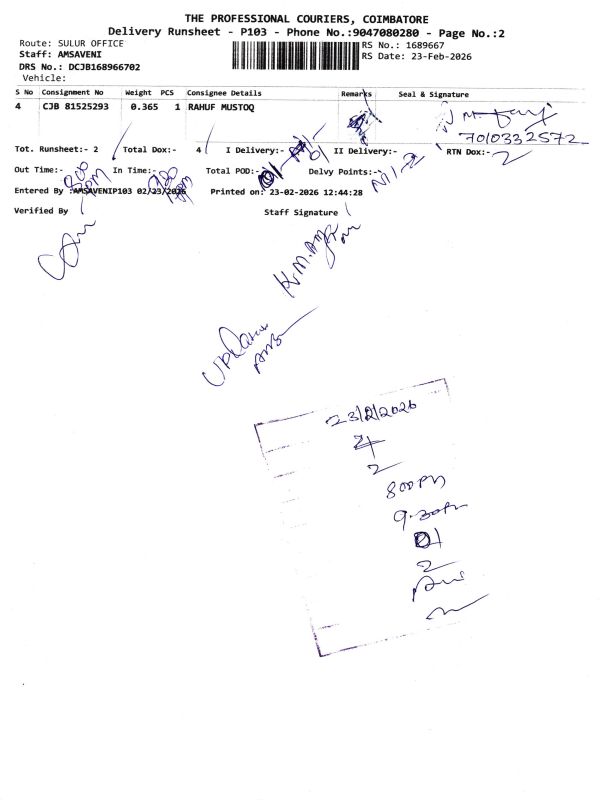 THE PROFESSIONAL COURIERS, COIMBATORE
Delivery Runsheet - P103 - Phone No.:9047080280 - Page No.:2
Route: SULUR OFFICE
Staff: AMSAVENI
DRS No.: DCJB168966702
Vehicle:
RS No.: 1689667
RS Date: 23-Feb-2026
S No Consignment No Weight PCS Consignee Details Remarks Seal & Signature
4 CJB 81525293 0.365 1 RAHUF MUSTOQ
7010332572
Tot. Runsheet:- 2 Total Dox:- 4 I Delivery:- II Delivery:- RTN Dox:- 2
Out Time:- In Time:- Total POD:- Delvy Points:-
Entered By :AMSAVENIP103 02/23/2026 Printed on: 23-02-2026 12:44:28
Verified By Staff Signature
23/2/2026
4
2
800PM
9.30PM
01
2